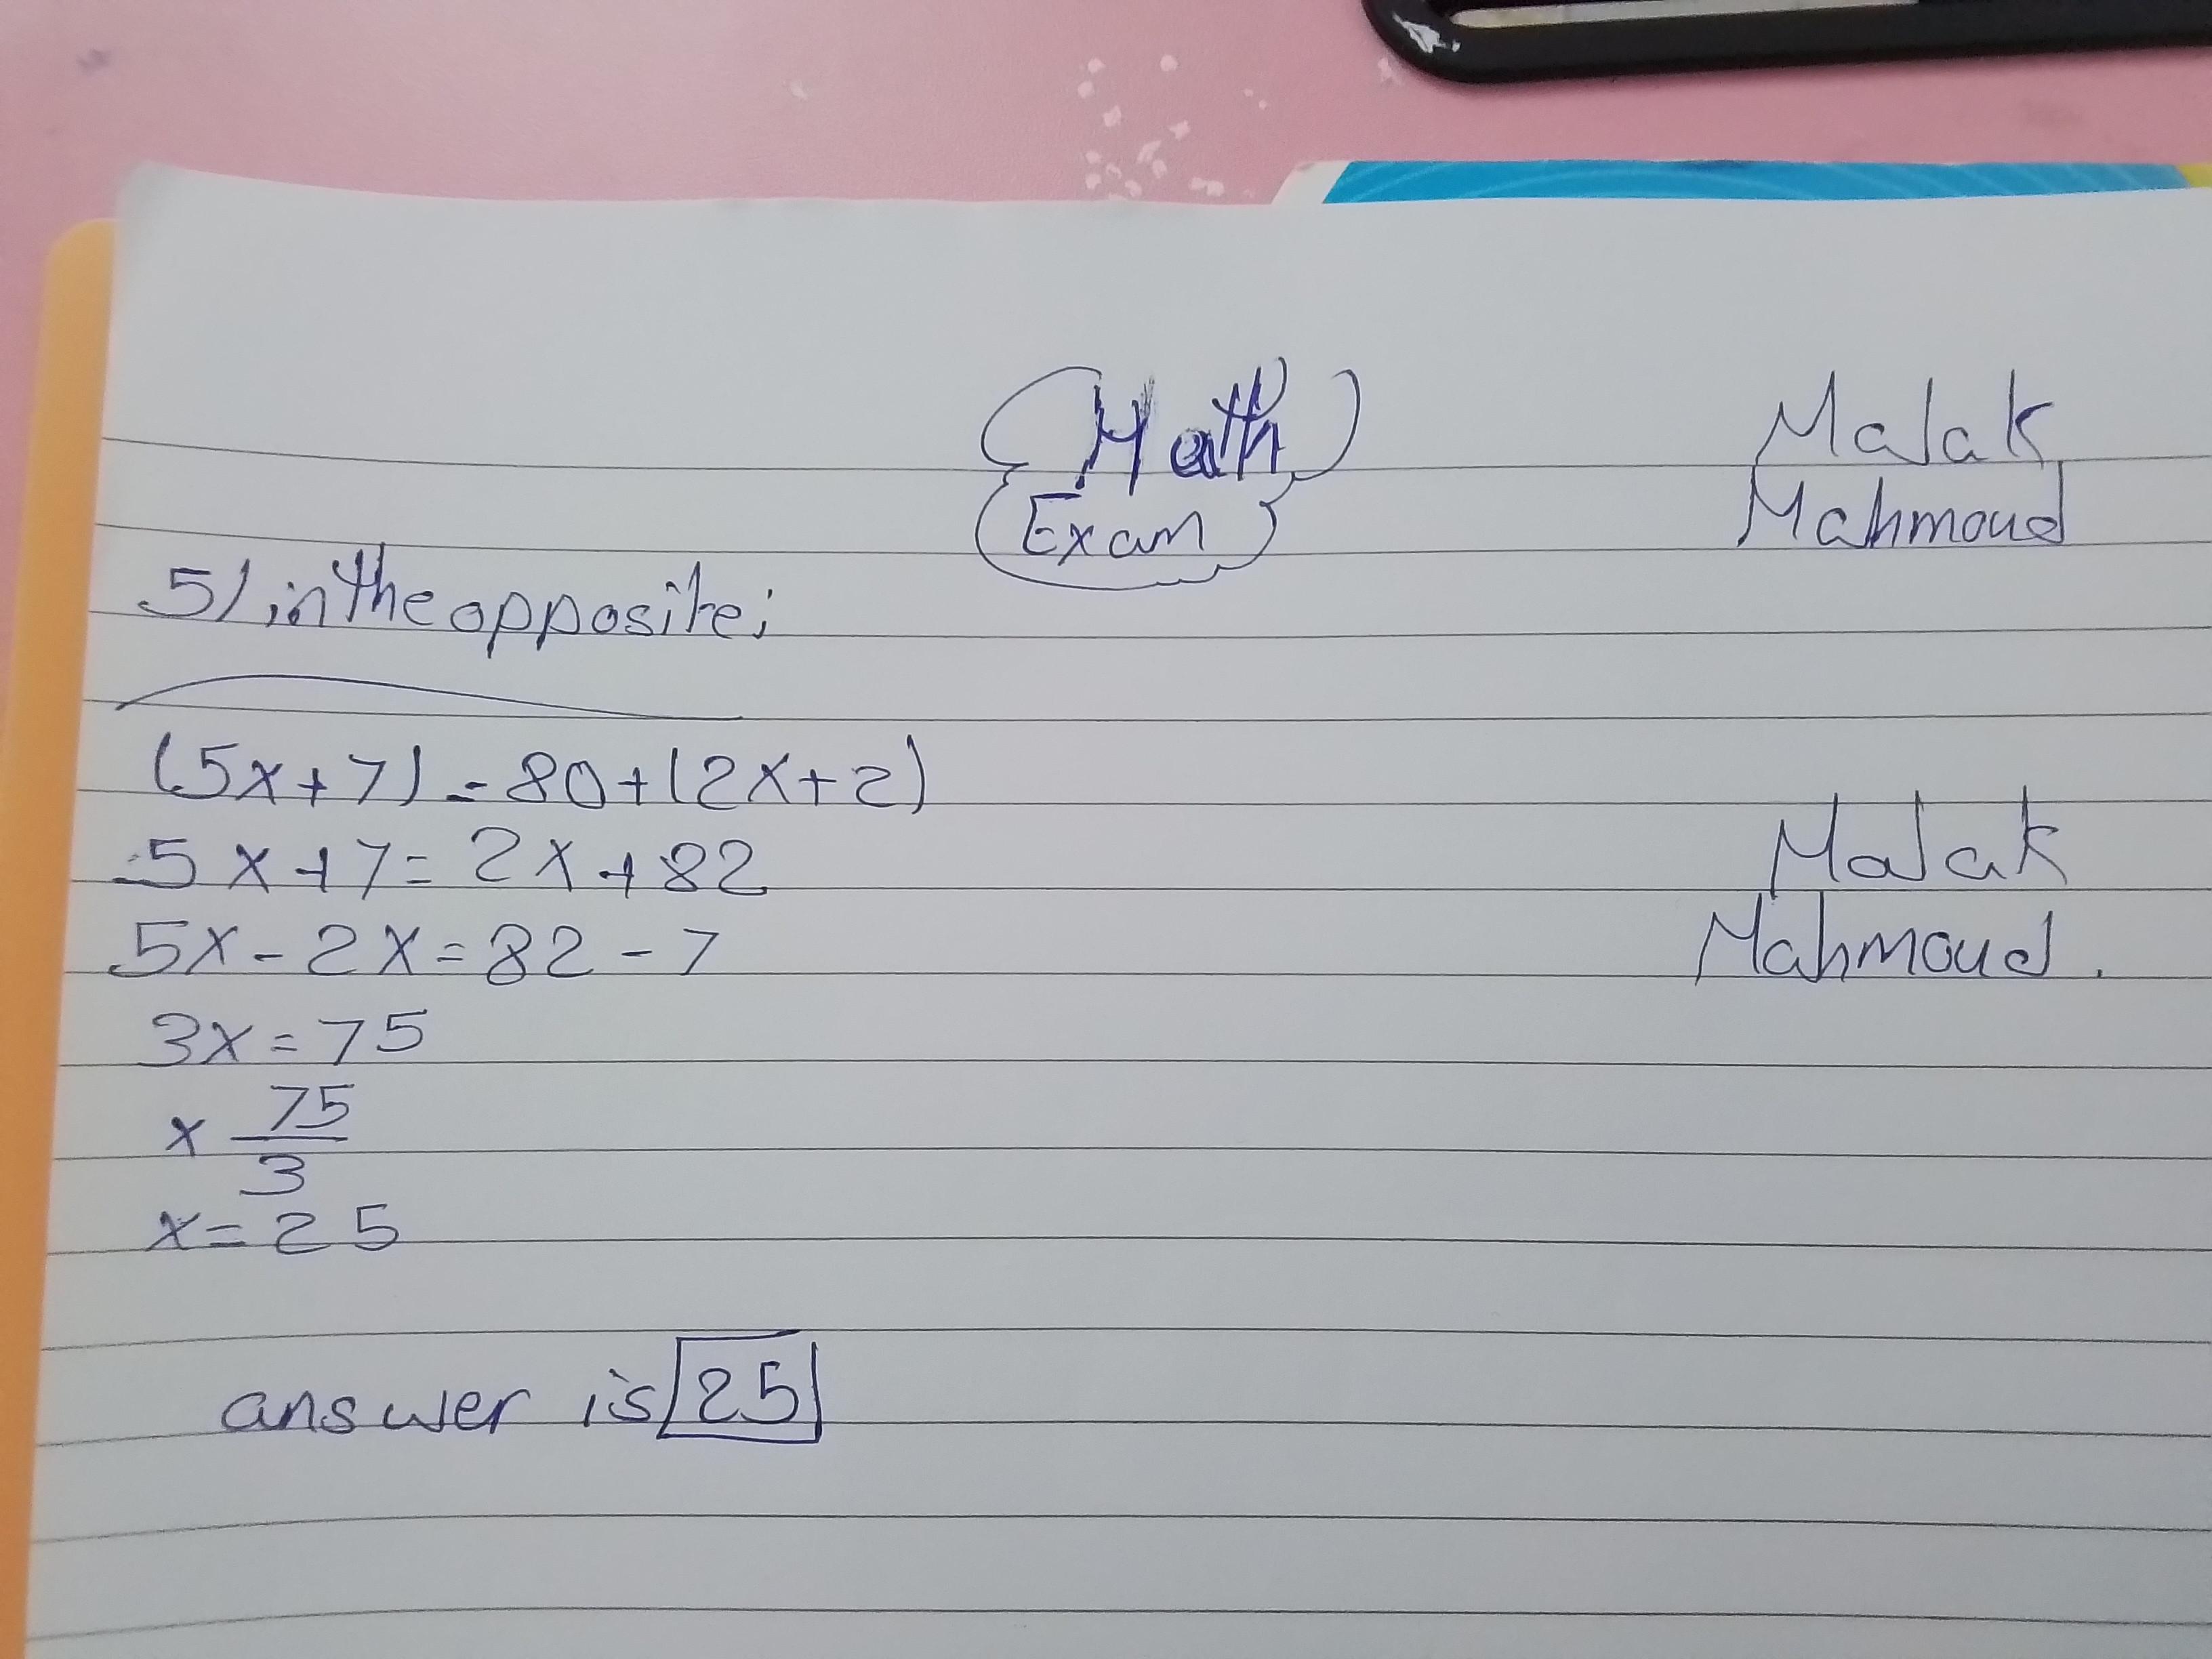 Math
Exam
Malak
Mahmoud
5) in the opposite;
(5x+7) = 80+(2x+2)
5x+7= 2x+82
5x-2x=82-7
3x=75
x 75
3
x=25
answer is 25
Malak
Mahmoud.